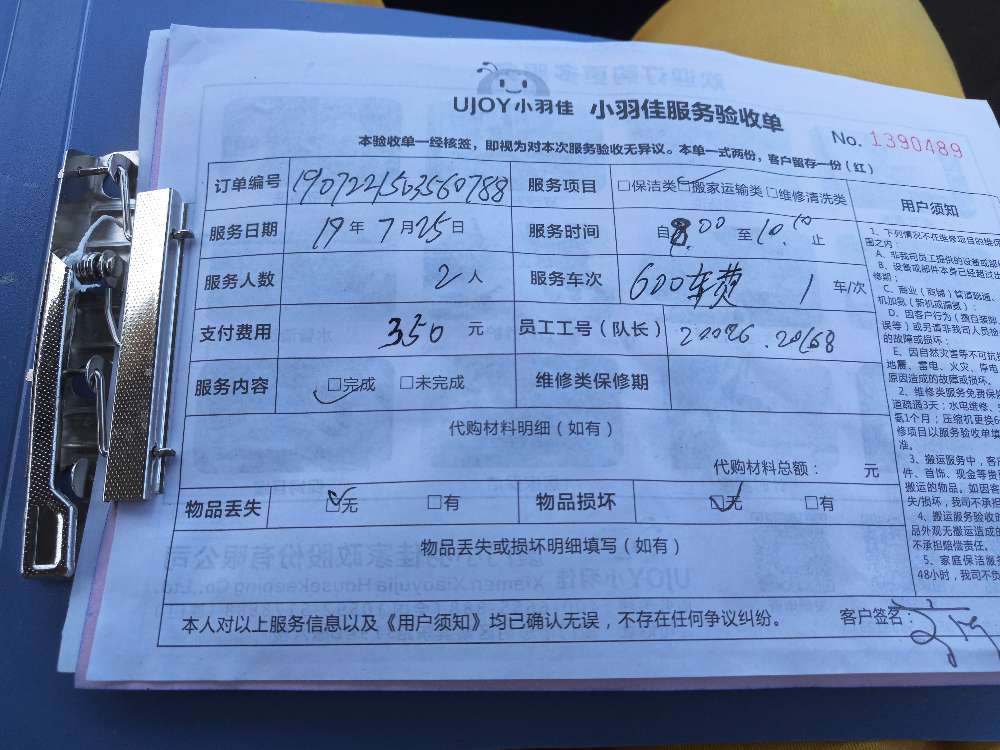 UJOY小羽佳 小羽佳服务验收单
No. 1390489
本验收单一经核签，即视为对本次服务验收无异议。本单一式两份，客户留存一份（红）
订单编号 1907221503560788 服务项目 □保洁类☑搬家运输类□维修清洗类 用户须知
服务日期 19年7月25日 服务时间 自8.00至10.10止
服务人数 2人 服务车次 600车费 1 车/次
支付费用 350 元 员工工号（队长） 21026.20168
服务内容 ☑完成 □未完成 维修类保修期
代购材料明细（如有）
代购材料总额： 元
物品丢失 ☑无 □有 物品损坏 ☑无 □有
物品丢失或损坏明细填写（如有）
本人对以上服务信息以及《用户须知》均已确认无误，不存在任何争议纠纷。 客户签名：
1、下列情况不在维修项目的维保
围之内：
A、非我司员工提供的设备或部
B、设备或部件本身已经超过出
修期；
C、商业（商铺）管道疏通、
机加氨（新机或漏氨）；
D、因客户行为（擅自装卸、
误等）或另请非我司人员
的故障或损坏；
E、因自然灾害等不可抗
地震、雷电、火灾、停电
原因造成的故障或损坏。
2、维修类服务免费保
道疏通3天；水电维修、
氨1个月；压缩机更换6
修项目以服务验收单填
准。
3、搬运服务中，客
件、首饰、现金等贵
搬运的物品。如因客
失/损坏，我司不承担
4、搬运服务验收
品外观无搬运造成的
不承担赔偿责任。
5、家庭保洁服务
48小时，我司不负